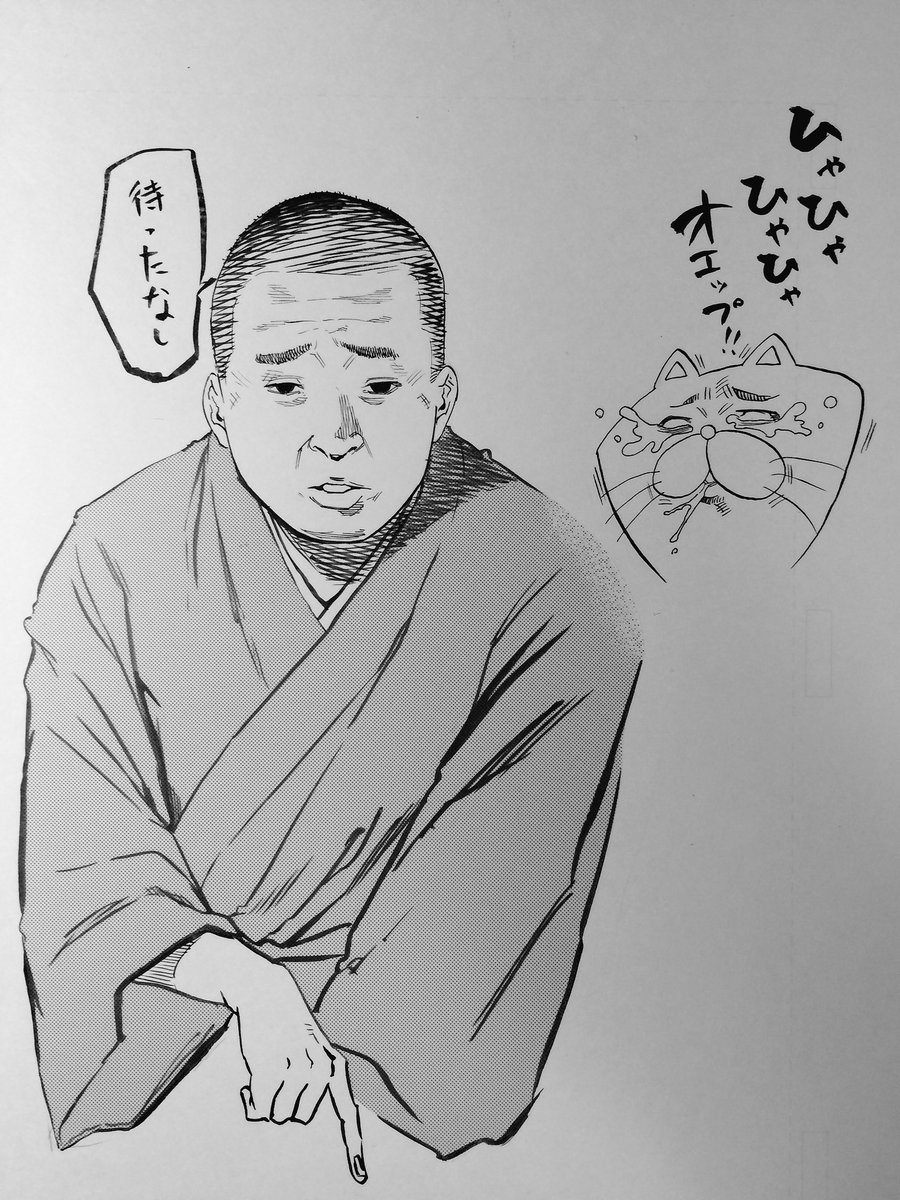 ひゃひゃ
ひゃひゃ
オエップ!!
待ったなし